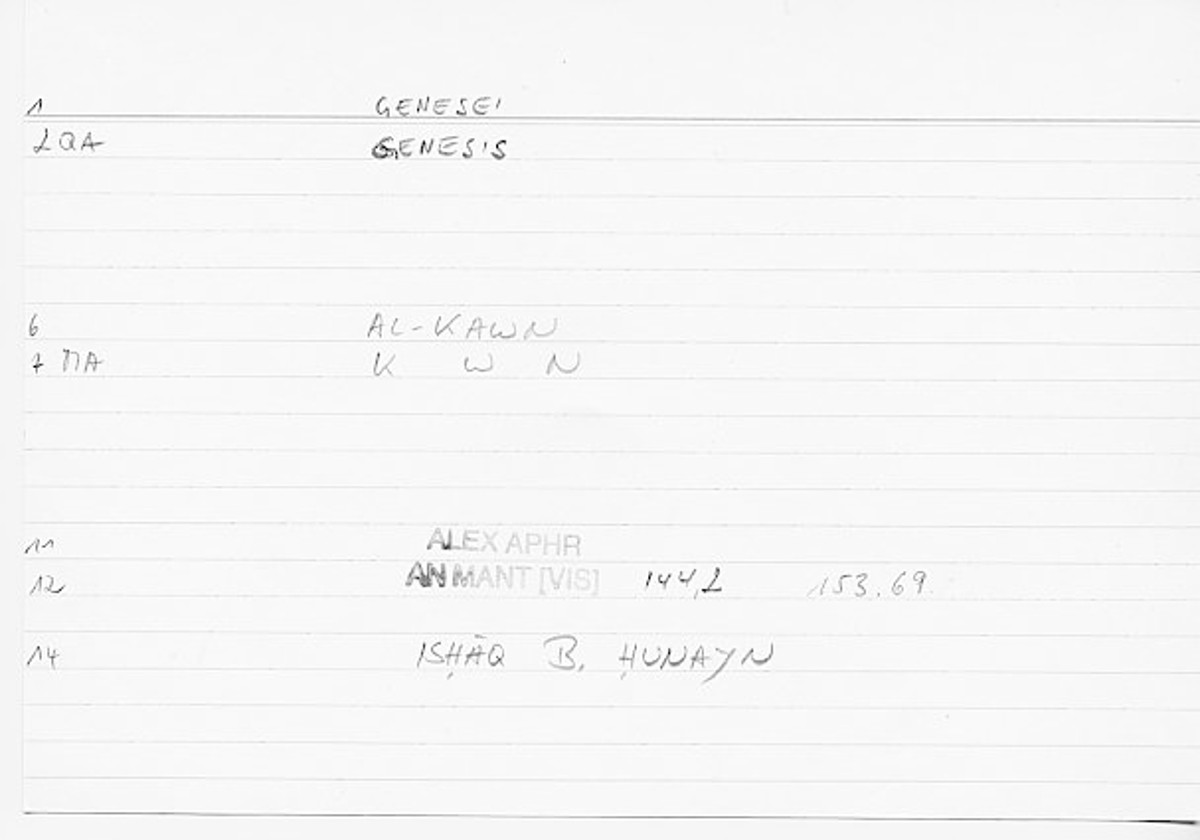 1 GENESEI
2 QA GENESIS
6 AL-KAWN
7 MA K W N
11 ALEX APHR
12 AN MANT [VIS] 144,2 153.69
14 ISḤĀQ B. ḤUNAYN